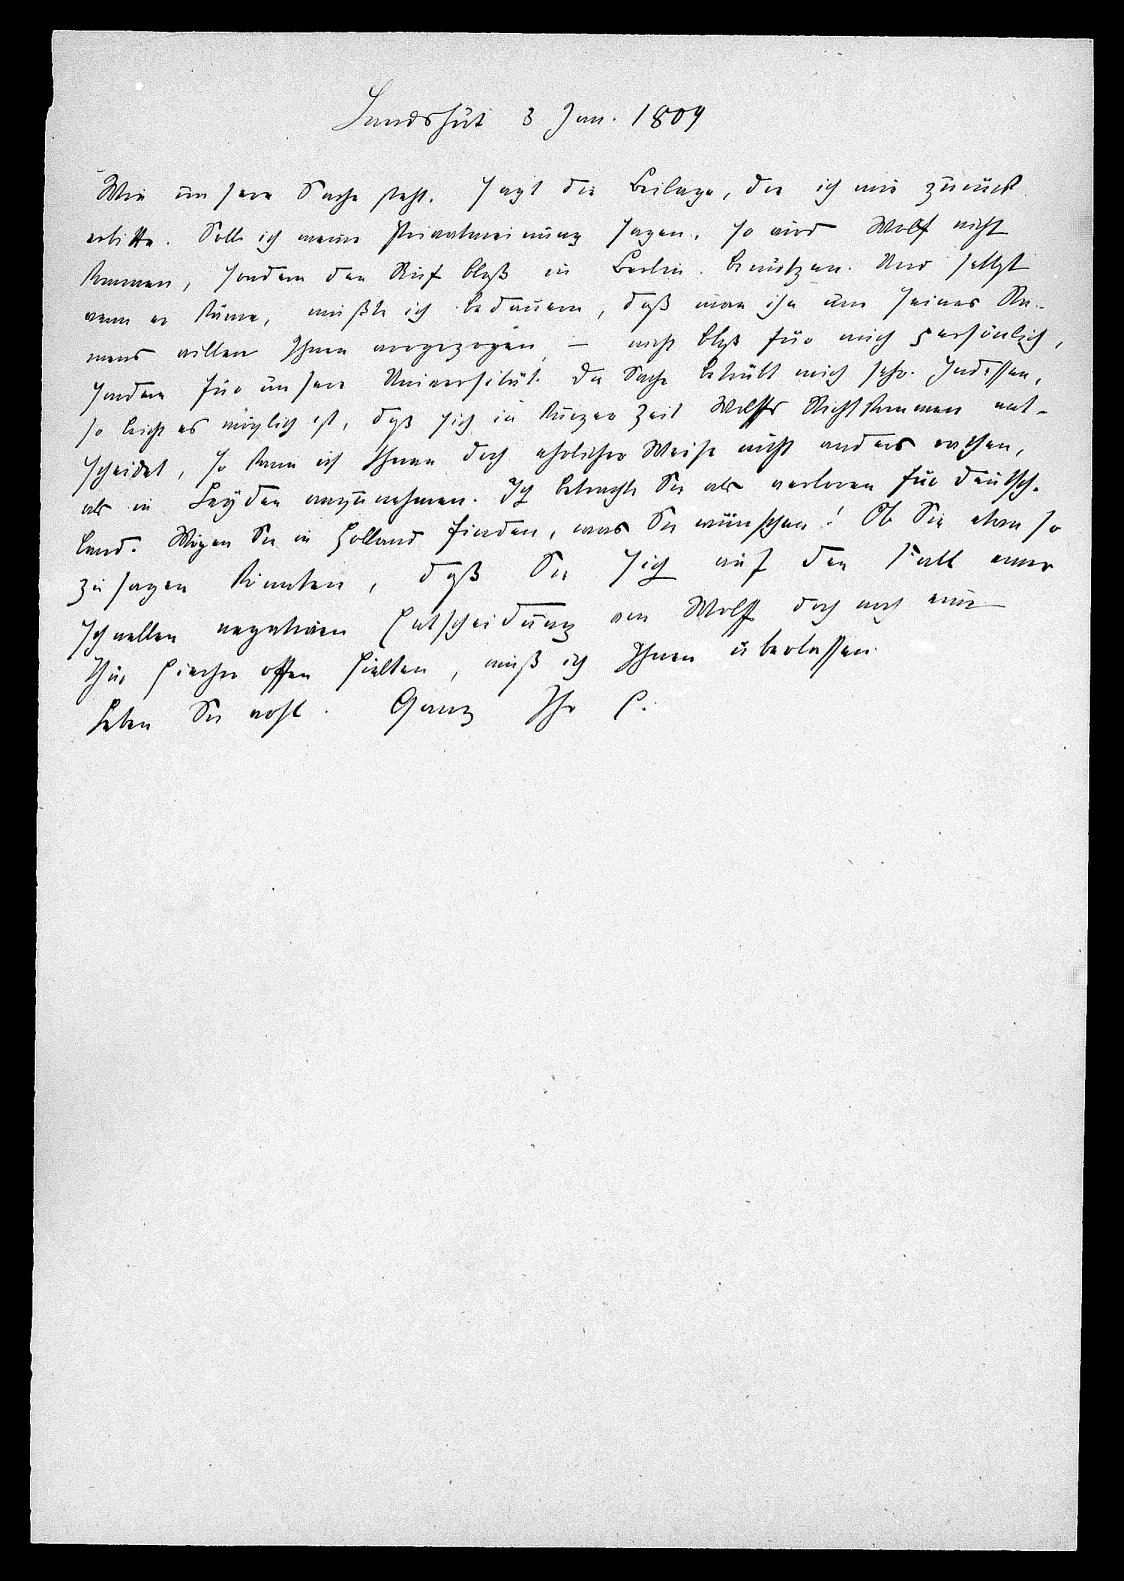 Landshut 3 Jan. 1809
Wie unsere Sache steht, sagt die Beilage, die ich mir zurück
erbitte. Soll ich meine Privatmeinung sagen, so wird Wolf nicht
kommen, sondern den Ruf bloß in Berlin benützen. Und selbst
wenn er käme, müßte ich bedauern, daß man ihn um seines Na-
mens willen Ihnen vorgezogen, – nicht bloß für mich persönlich,
sondern für unsere Universität. Die Sache betrübt mich sehr. Indessen,
so leicht es möglich ist, daß sich in kurzer Zeit Wolffs Nichtkommen ent-
scheidet, so kann ich Ihnen doch ehrlicher Weise nicht anders rathen,
als in Leyden anzunehmen. Ich betrachte Sie als verloren für Deutsch-
land. Mögen Sie in Holland finden, was Sie wünschen! Ob Sie etwa so
zusagen könnten, daß Sie sich auf den Fall einer
schnellen negativen Entscheidung von Wolff doch noch eine
Thür hierher offen hielten, muß ich Ihnen überlassen.
Leben Sie wohl. Ganz Ihr C.